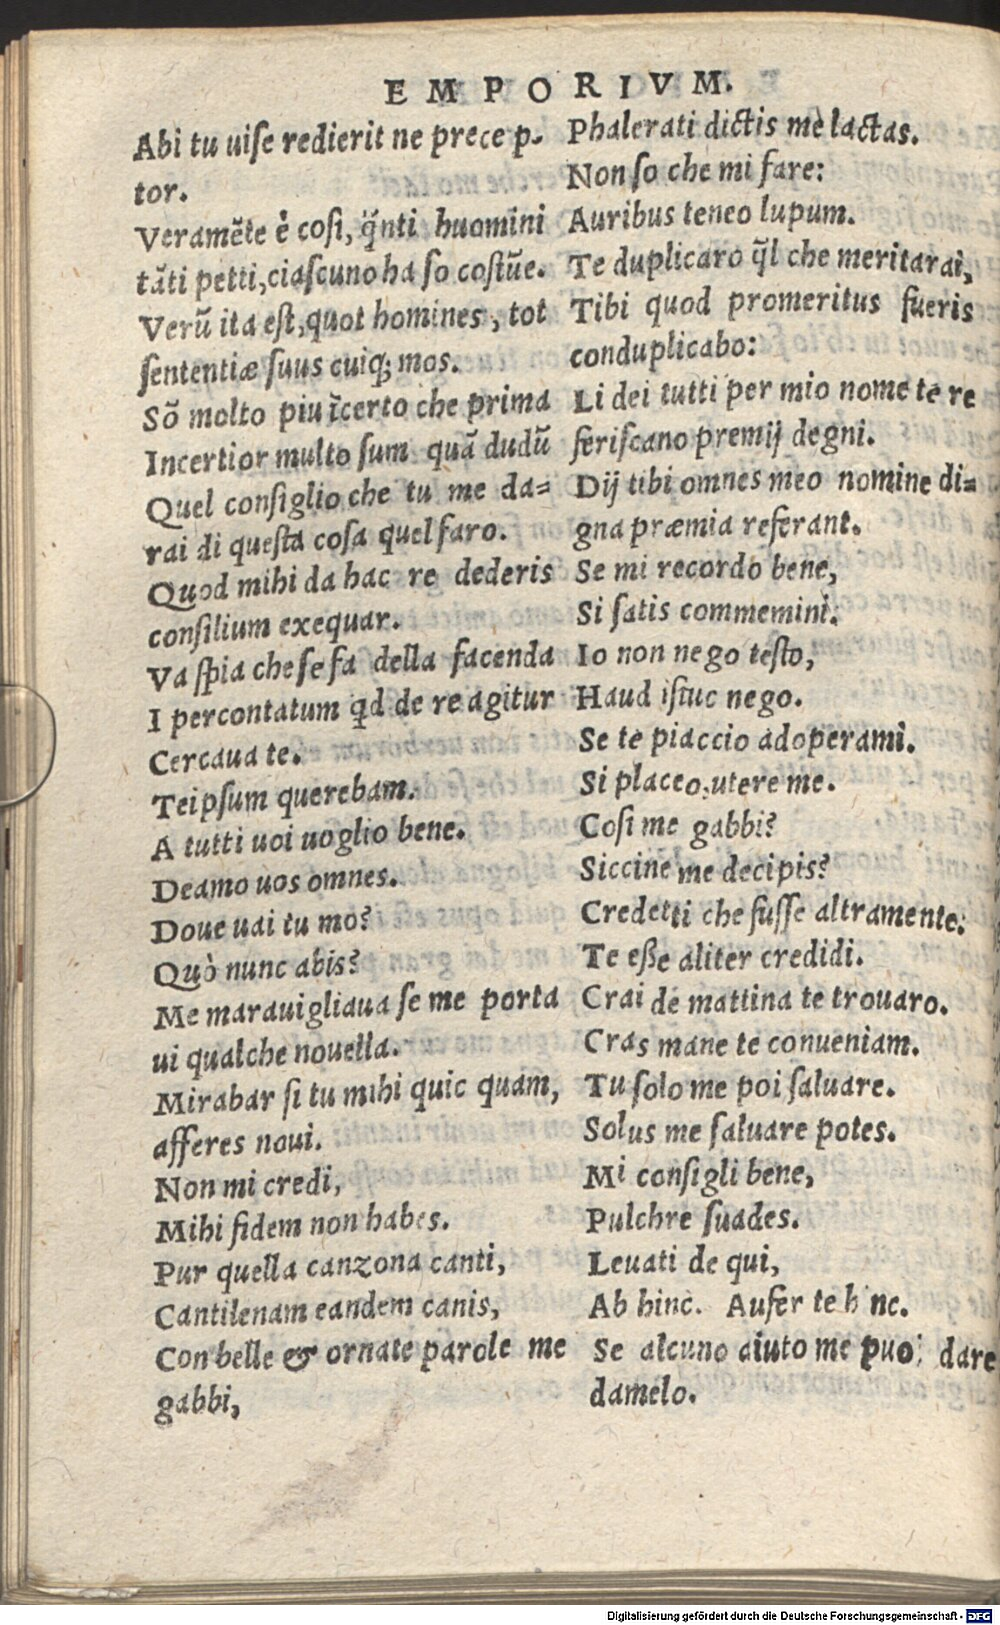 EMPORIVM.
Abi tu uiſe redierit ne prece p-
tor.
Veramēte è coſi, q̃nti huomini
tāti petti, ciaſcuno ha ſo coſtūe.
Verū ita eſt, quot homines, tot
ſententiæ ſuus cuiq; mos.
Sō molto piu īcerto che prima
Incertior multo ſum quā dudū
Quel conſiglio che tu me da=
rai di queſta coſa quel faro.
Quod mihi da hac re dederis
conſilium exequar.
Va ſpia che ſe fa della facenda
I percontatum qd de re agitur
Cercaua te.
Teipſum querebam.
A tutti uoi uoglio bene.
Deamo uos omnes.
Doue uai tu mo?
Quò nunc abis?
Me marauigliaua ſe me porta
ui qualche nouella.
Mirabar ſi tu mihi quic quam,
afferes noui.
Non mi credi,
Mihi fidem non habes.
Pur quella canzona canti,
Cantilenam eandem canis,
Con belle & ornate parole me
gabbi,
Phalerati dictis me lactas.
Non ſo che mi fare:
Auribus teneo lupum.
Te duplicaro q̃l che meritarai,
Tibi quod promeritus fueris
conduplicabo:
Li dei tutti per mio nome te re
feriſcano premij degni.
Dij tibi omnes meo nomine di=
gna præmia referant.
Se mi recordo bene,
Si ſatis commemini.
Io non nego teſto,
Haud iſtuc nego.
Se te piaccio adoperami.
Si placeo, utere me.
Coſi me gabbi?
Siccine me decipis?
Credetti che fuſſe altramente.
Te eſſe aliter credidi.
Crai de mattina te trouaro.
Cras mane te conueniam.
Tu ſolo me poi ſaluare.
Solus me ſaluare potes.
Mi conſigli bene,
Pulchre ſuades.
Leuati de qui,
Ab hinc. Aufer te hinc.
Se alcuno aiuto me puoi dare
damelo.
Digitalisierung gefördert durch die Deutsche Forschungsgemeinschaft - DFG